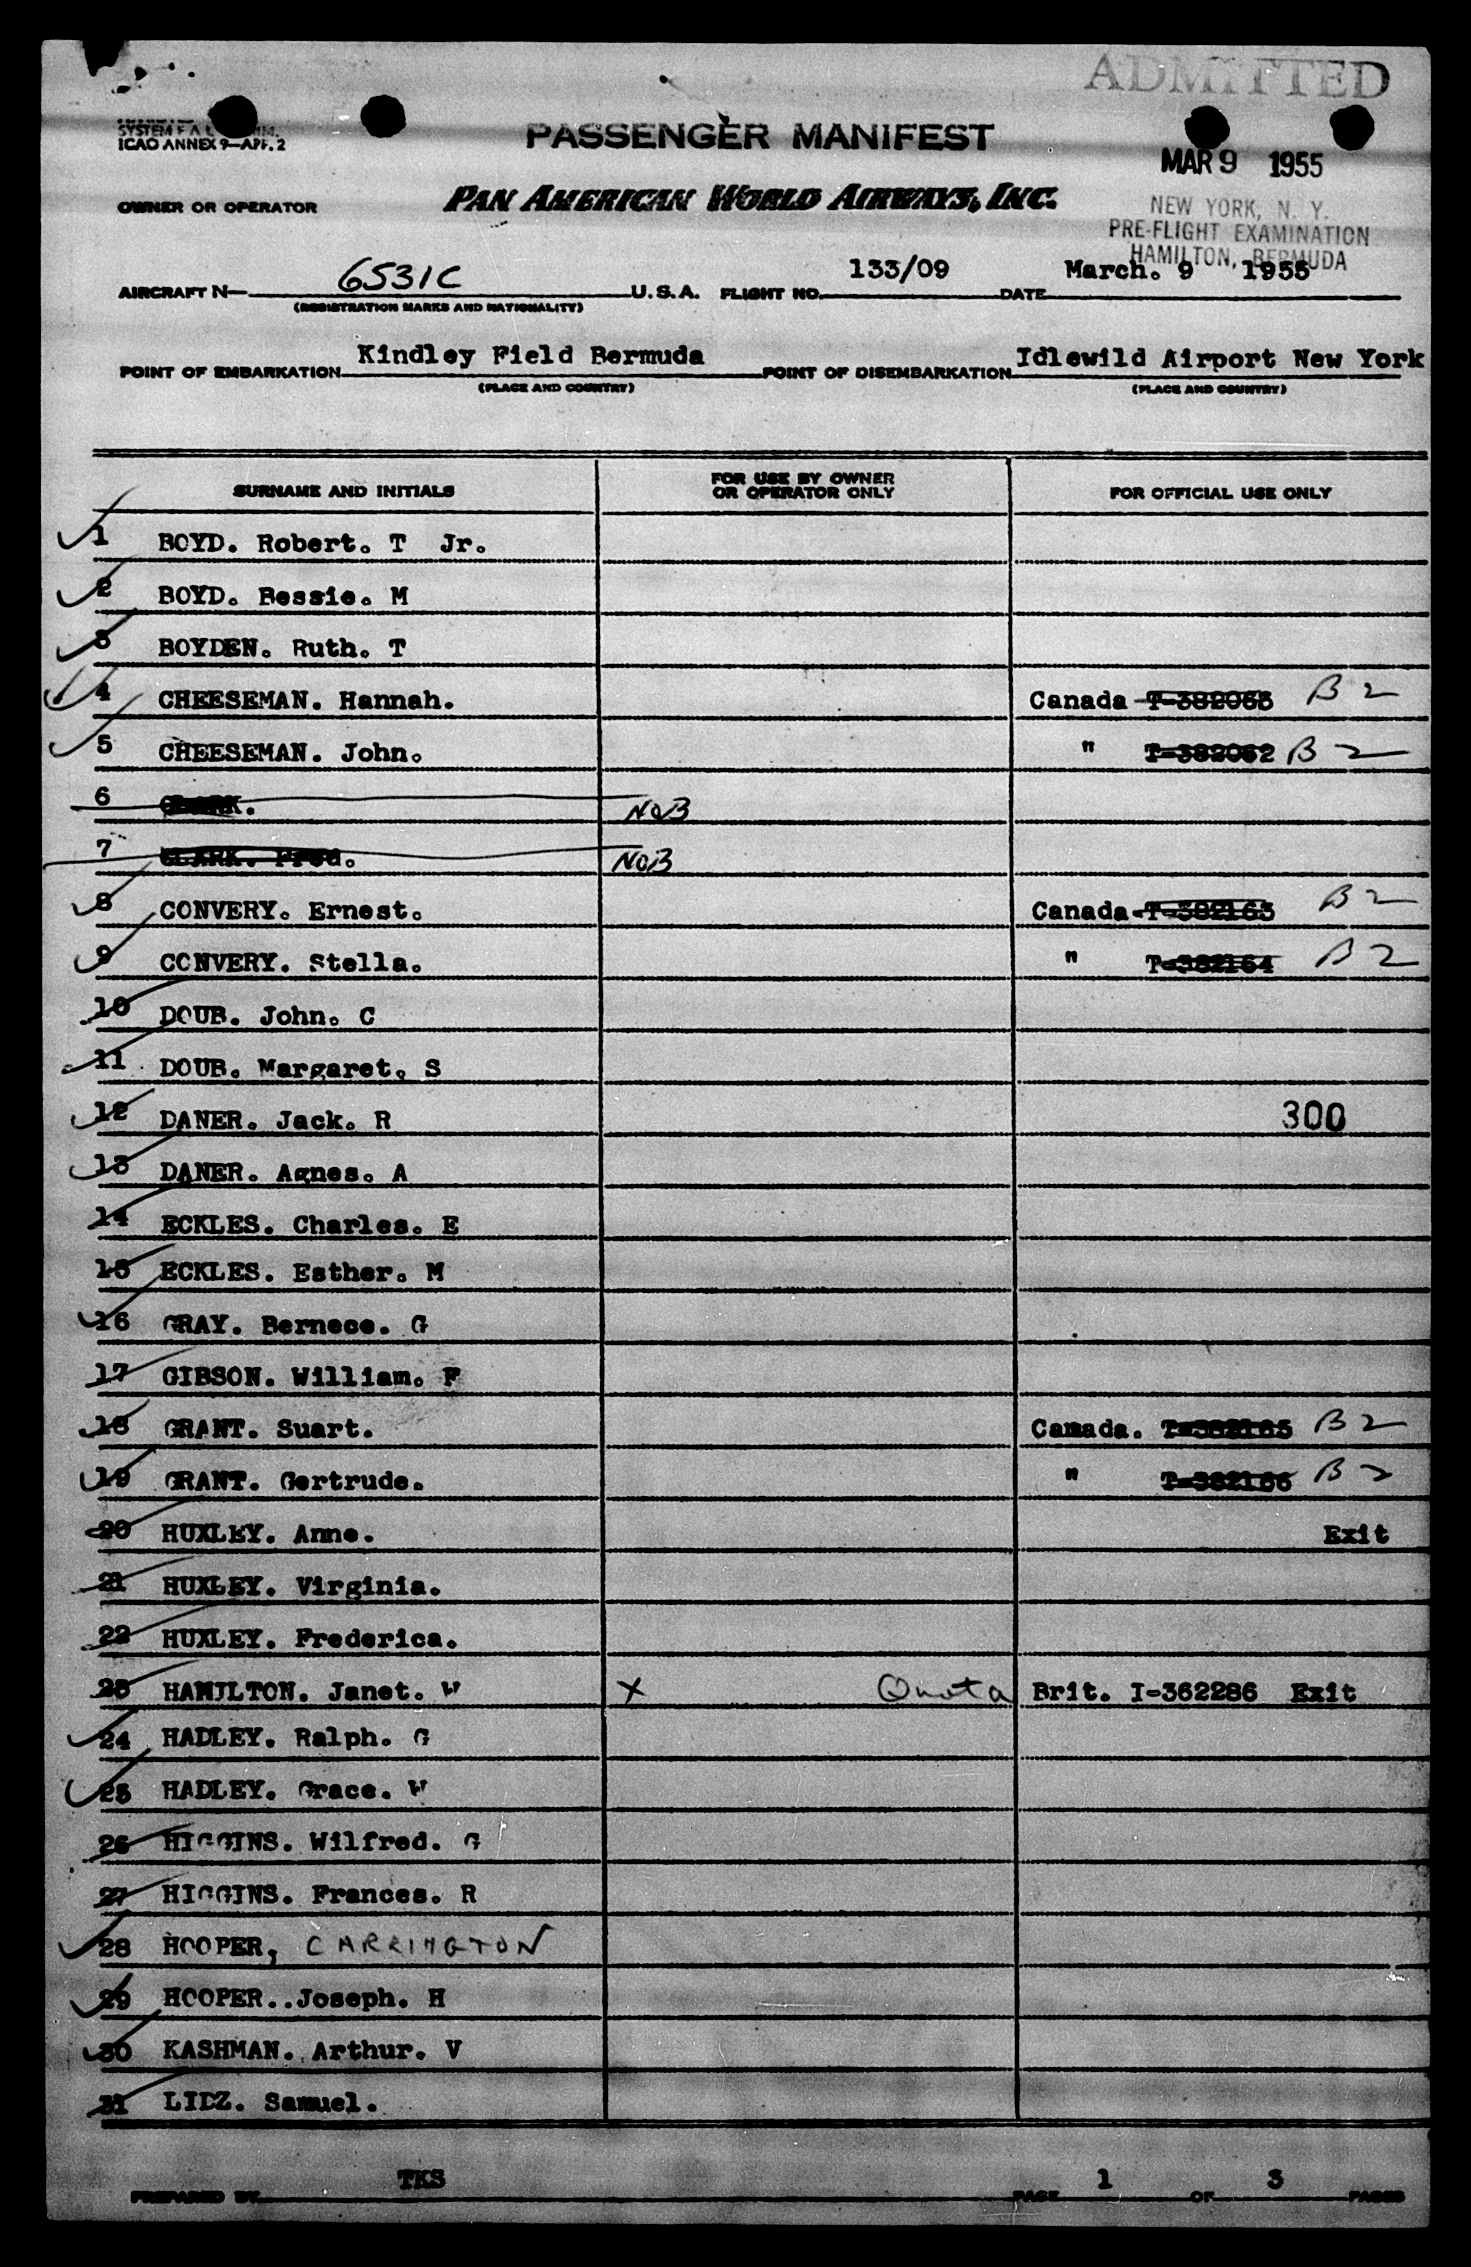 ADMITTED
ICAO ANNEX 9—APP. 2
PASSENGER MANIFEST
MAR 9 1955
OWNER OR OPERATOR
PAN AMERICAN WORLD AIRWAYS, INC.
NEW YORK, N. Y.
PRE-FLIGHT EXAMINATION
HAMILTON, BERMUDA
AIRCRAFT N— 6531C U.S.A. FLIGHT NO. 133/09 DATE March. 9 1955
(REGISTRATION MARKS AND NATIONALITY)
POINT OF EMBARKATION Kindley Field Bermuda POINT OF DISEMBARKATION Idlewild Airport New York
(PLACE AND COUNTRY) (PLACE AND COUNTRY)
SURNAME AND INITIALS FOR USE BY OWNER OR OPERATOR ONLY FOR OFFICIAL USE ONLY
1 BOYD. Robert. T Jr.
2 BOYD. Bessie. M
3 BOYDEN. Ruth. T
4 CHEESEMAN. Hannah. Canada T-382063 B2
5 CHEESEMAN. John. " T-382062 B2
6 CLARK. NOB
7 CLARK. Fred. NOB
8 CONVERY. Ernest. Canada-T-382163 B2
9 CONVERY. Stella. " T-382164 B2
10 DOUB. John. C
11 DOUB. Margaret. S
12 DANER. Jack. R 300
13 DANER. Agnes. A
14 ECKLES. Charles. E
15 ECKLES. Esther. M
16 GRAY. Bernece. G
17 GIBSON. William. F
18 GRANT. Suart. Canada. T-382165 B2
19 GRANT. Gertrude. " T-382166 B2
20 HUXLEY. Anne. Exit
21 HUXLEY. Virginia.
22 HUXLEY. Frederica.
23 HAMILTON. Janet. W X Quota Brit. I-362286 Exit
24 HADLEY. Ralph. G
25 HADLEY. Grace. W
26 HIGGINS. Wilfred. G
27 HIGGINS. Frances. R
28 HOOPER, CARRINGTON
29 HOOPER..Joseph. H
30 KASHMAN. Arthur. V
31 LIDZ. Samuel.
PREPARED BY TKS PAGE 1 OF 3 PAGES